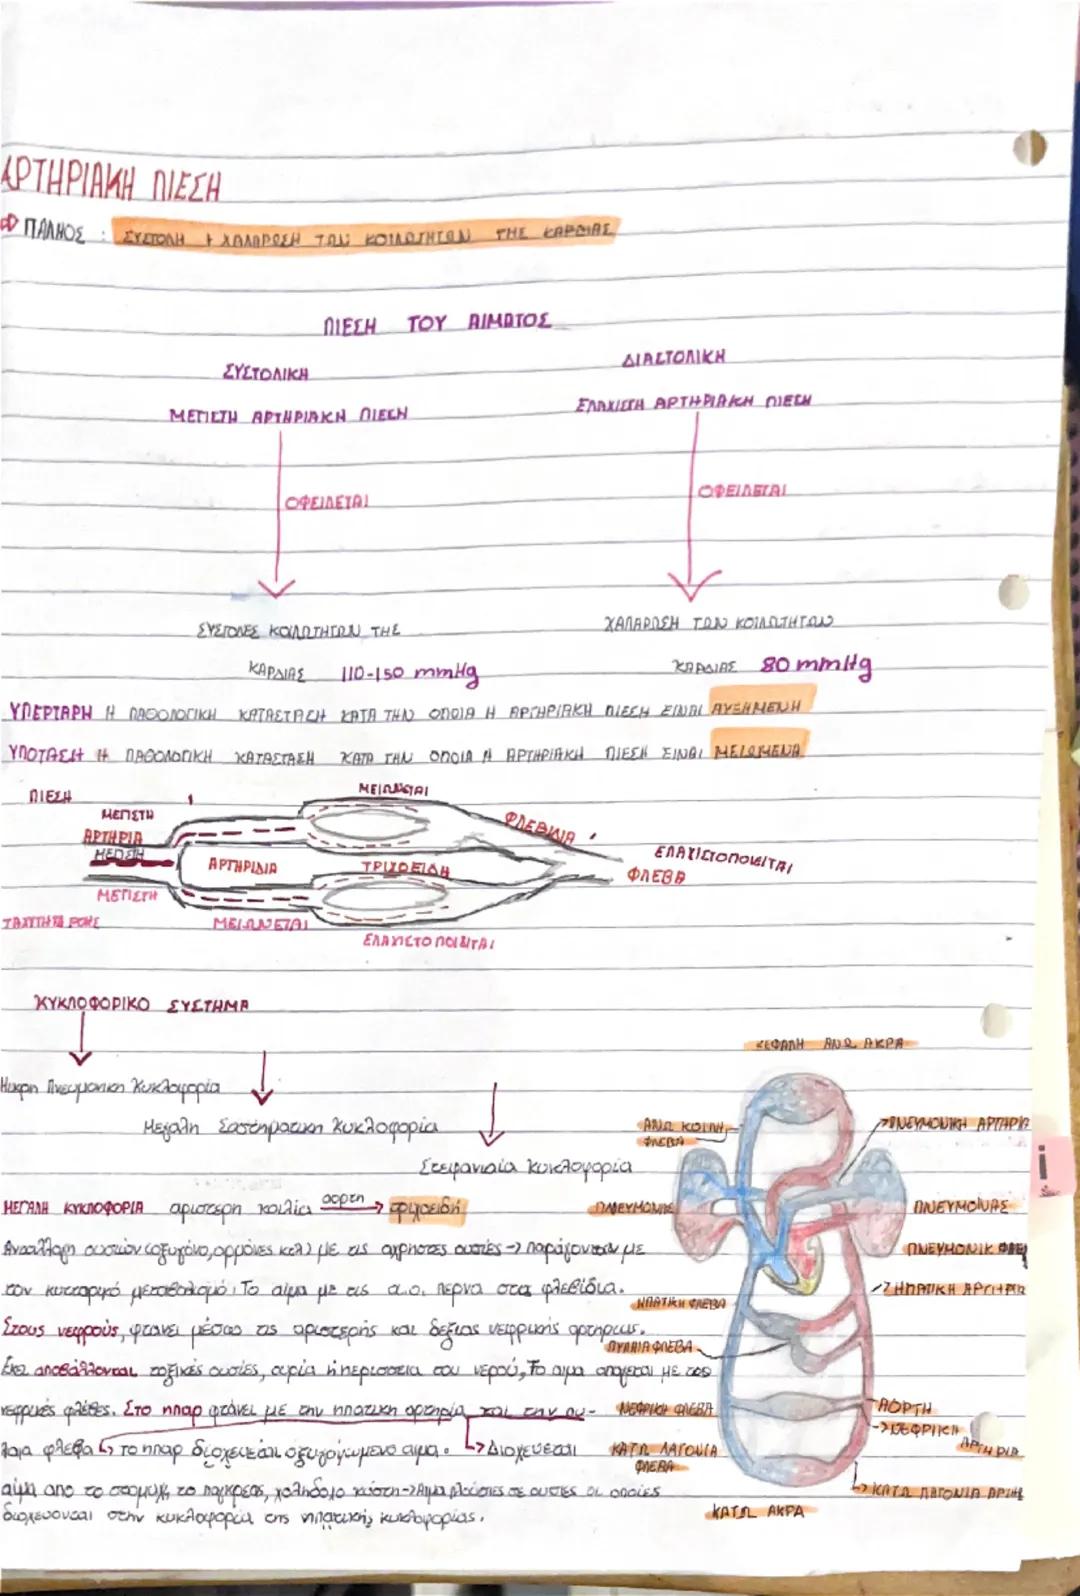 ΑΡΤΗΡΙΑΚΗ ΠΙΕΣΗ
ΠΑΛΜΟΣ : ΣΥΣΤΟΛΗ + ΧΑΛΑΡΩΣΗ ΤΩΝ ΚΟΙΛΟΤΗΤΩΝ ΤΗΣ ΚΑΡΔΙΑΣ
ΠΙΕΣΗ ΤΟΥ ΑΙΜΑΤΟΣ
ΣΥΣΤΟΛΙΚΗ
ΔΙΑΣΤΟΛΙΚΗ
ΜΕΓΙΣΤΗ ΑΡΤΗΡΙΑΚΗ ΠΙΕΣΗ
ΕΛΑΧΙΣΤΗ ΑΡΤΗΡΙΑΚΗ ΠΙΕΣΗ
ΟΦΕΙΛΕΤΑΙ
ΟΦΕΙΛΕΤΑΙ
ΣΥΣΤΟΛΕΣ ΚΟΙΛΟΤΗΤΩΝ ΤΗΣ
ΚΑΡΔΙΑΣ 110-150 mmHg
ΧΑΛΑΡΩΣΗ ΤΩΝ ΚΟΙΛΟΤΗΤΩΝ
ΚΑΡΔΙΑΣ 80 mmHg
ΥΠΕΡΤΑΡΗ Η ΠΑΘΟΛΟΓΙΚΗ ΚΑΤΑΣΤΑΣΗ ΚΑΤΑ ΤΗΝ ΟΠΟΙΑ Η ΑΡΤΗΡΙΑΚΗ ΠΙΕΣΗ ΕΙΝΑΙ ΑΥΞΗΜΕΝΗ
ΥΠΟΤΑΣΗ Η ΠΑΘΟΛΟΓΙΚΗ ΚΑΤΑΣΤΑΣΗ ΚΑΤΑ ΤΗΝ ΟΠΟΙΑ Η ΑΡΤΗΡΙΑΚΗ ΠΙΕΣΗ ΕΙΝΑΙ ΜΕΙΩΜΕΝΑ
ΠΙΕΣΗ
ΜΕΓΙΣΤΗ
ΜΕΙΩΝΕΤΑΙ
ΑΡΤΗΡΙΑ
ΦΛΕΒΙΔΙΑ
ΜΕΓΙΣΤΗ
ΑΡΤΗΡΙΔΙΑ
ΤΡΙΧΟΕΙΔΗ
ΕΛΑΧΙΣΤΟΠΟΙΕΙΤΑΙ
ΦΛΕΒΑ
ΜΕΓΙΣΤΗ
ΤΑΧΥΤΗΤΑ ΡΟΗΣ
ΜΕΙΩΝΕΤΑΙ
ΕΛΑΧΙΣΤΟΠΟΙΕΙΤΑΙ
ΚΥΚΛΟΦΟΡΙΚΟ ΣΥΣΤΗΜΑ
Μικρη Πνευμονικη Κυκλοφορία
Μεγαλη Συστηματικη Κυκλοφορία
Στεφανιαία Κυκλοφορία
ΜΕΓΑΛΗ ΚΥΚΛΟΦΟΡΙΑ αριστερη κοιλία αορτη → τριχοειδή
Ανταλλαγη ουσιων (οξυγόνο, ορμόνες κτλ) με τις αχρηστες ουσιες → παράγονται με
τον κυτταρικό μεταβολισμό. Το αίμα με τις α.ο. περνα στα φλεβίδια.
Στους νεφρούς, φτανει μέσω της αριστερής και δεξιας νεφρικής αρτηριας.
Εκει αποβάλλονται τοξικές ουσίες, ουρία ή περισσεια του νερού, Το αιμα απαγεται με τις
νεφρικές φλέβες. Στο ηπαρ φτάνει με την ηπατικη αρτηρία και την πυ-
λαια φλεβα ↳ το ηπαρ διοχετεύεται οξυγονωμενο αιμα. ↳ Διοχετεύεται
αίμα απο το στομαχι, το παγκρεας, χοληδοχο κυστη → Αιμα πλούσιες σε ουσιες οι οποίες
διοχετευονται στην κυκλοφορία της ηπατικής κυκλοφορίας.
ΚΕΦΑΛΗ ΑΝΩ ΑΚΡΑ
ΑΝΩ ΚΟΙΛΗ
ΦΛΕΒΑ
ΠΝΕΥΜΟΝΙΚΗ ΑΡΤΗΡΙΑ
ΠΝΕΥΜΟΝΑΣ
ΠΝΕΥΜΟΝΙΚ ΦΛΕΒ
ΗΠΑΤΙΚΗ ΑΡΤΗΡΙΑ
ΗΠΑΤΙΚΗ ΦΛΕΒΑ
ΠΥΛΑΙΑ ΦΛΕΒΑ
ΝΕΦΡΙΚΗ ΦΛΕΒΑ
ΑΟΡΤΗ
ΝΕΦΡΙΚΗ
ΑΡΤΗΡΙΑ
ΚΑΤΩ ΛΑΓΟΝΙΑ
ΦΛΕΒΑ
ΚΑΤΩ ΛΑΓΟΝΙΑ ΑΡΤΗ
ΚΑΤΩ ΑΚΡΑ